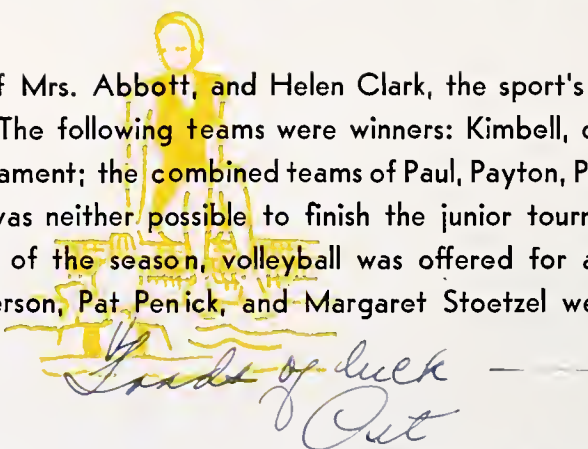 f Mrs. Abbott, and Helen Clark, the sport's
The following teams were winners: Kimbell, c
ament; the combined teams of Paul, Payton, P
was neither possible to finish the junior tourn
of the season, volleyball was offered for a
erson, Pat Penick, and Margaret Stoetzel we
Loads of luck —